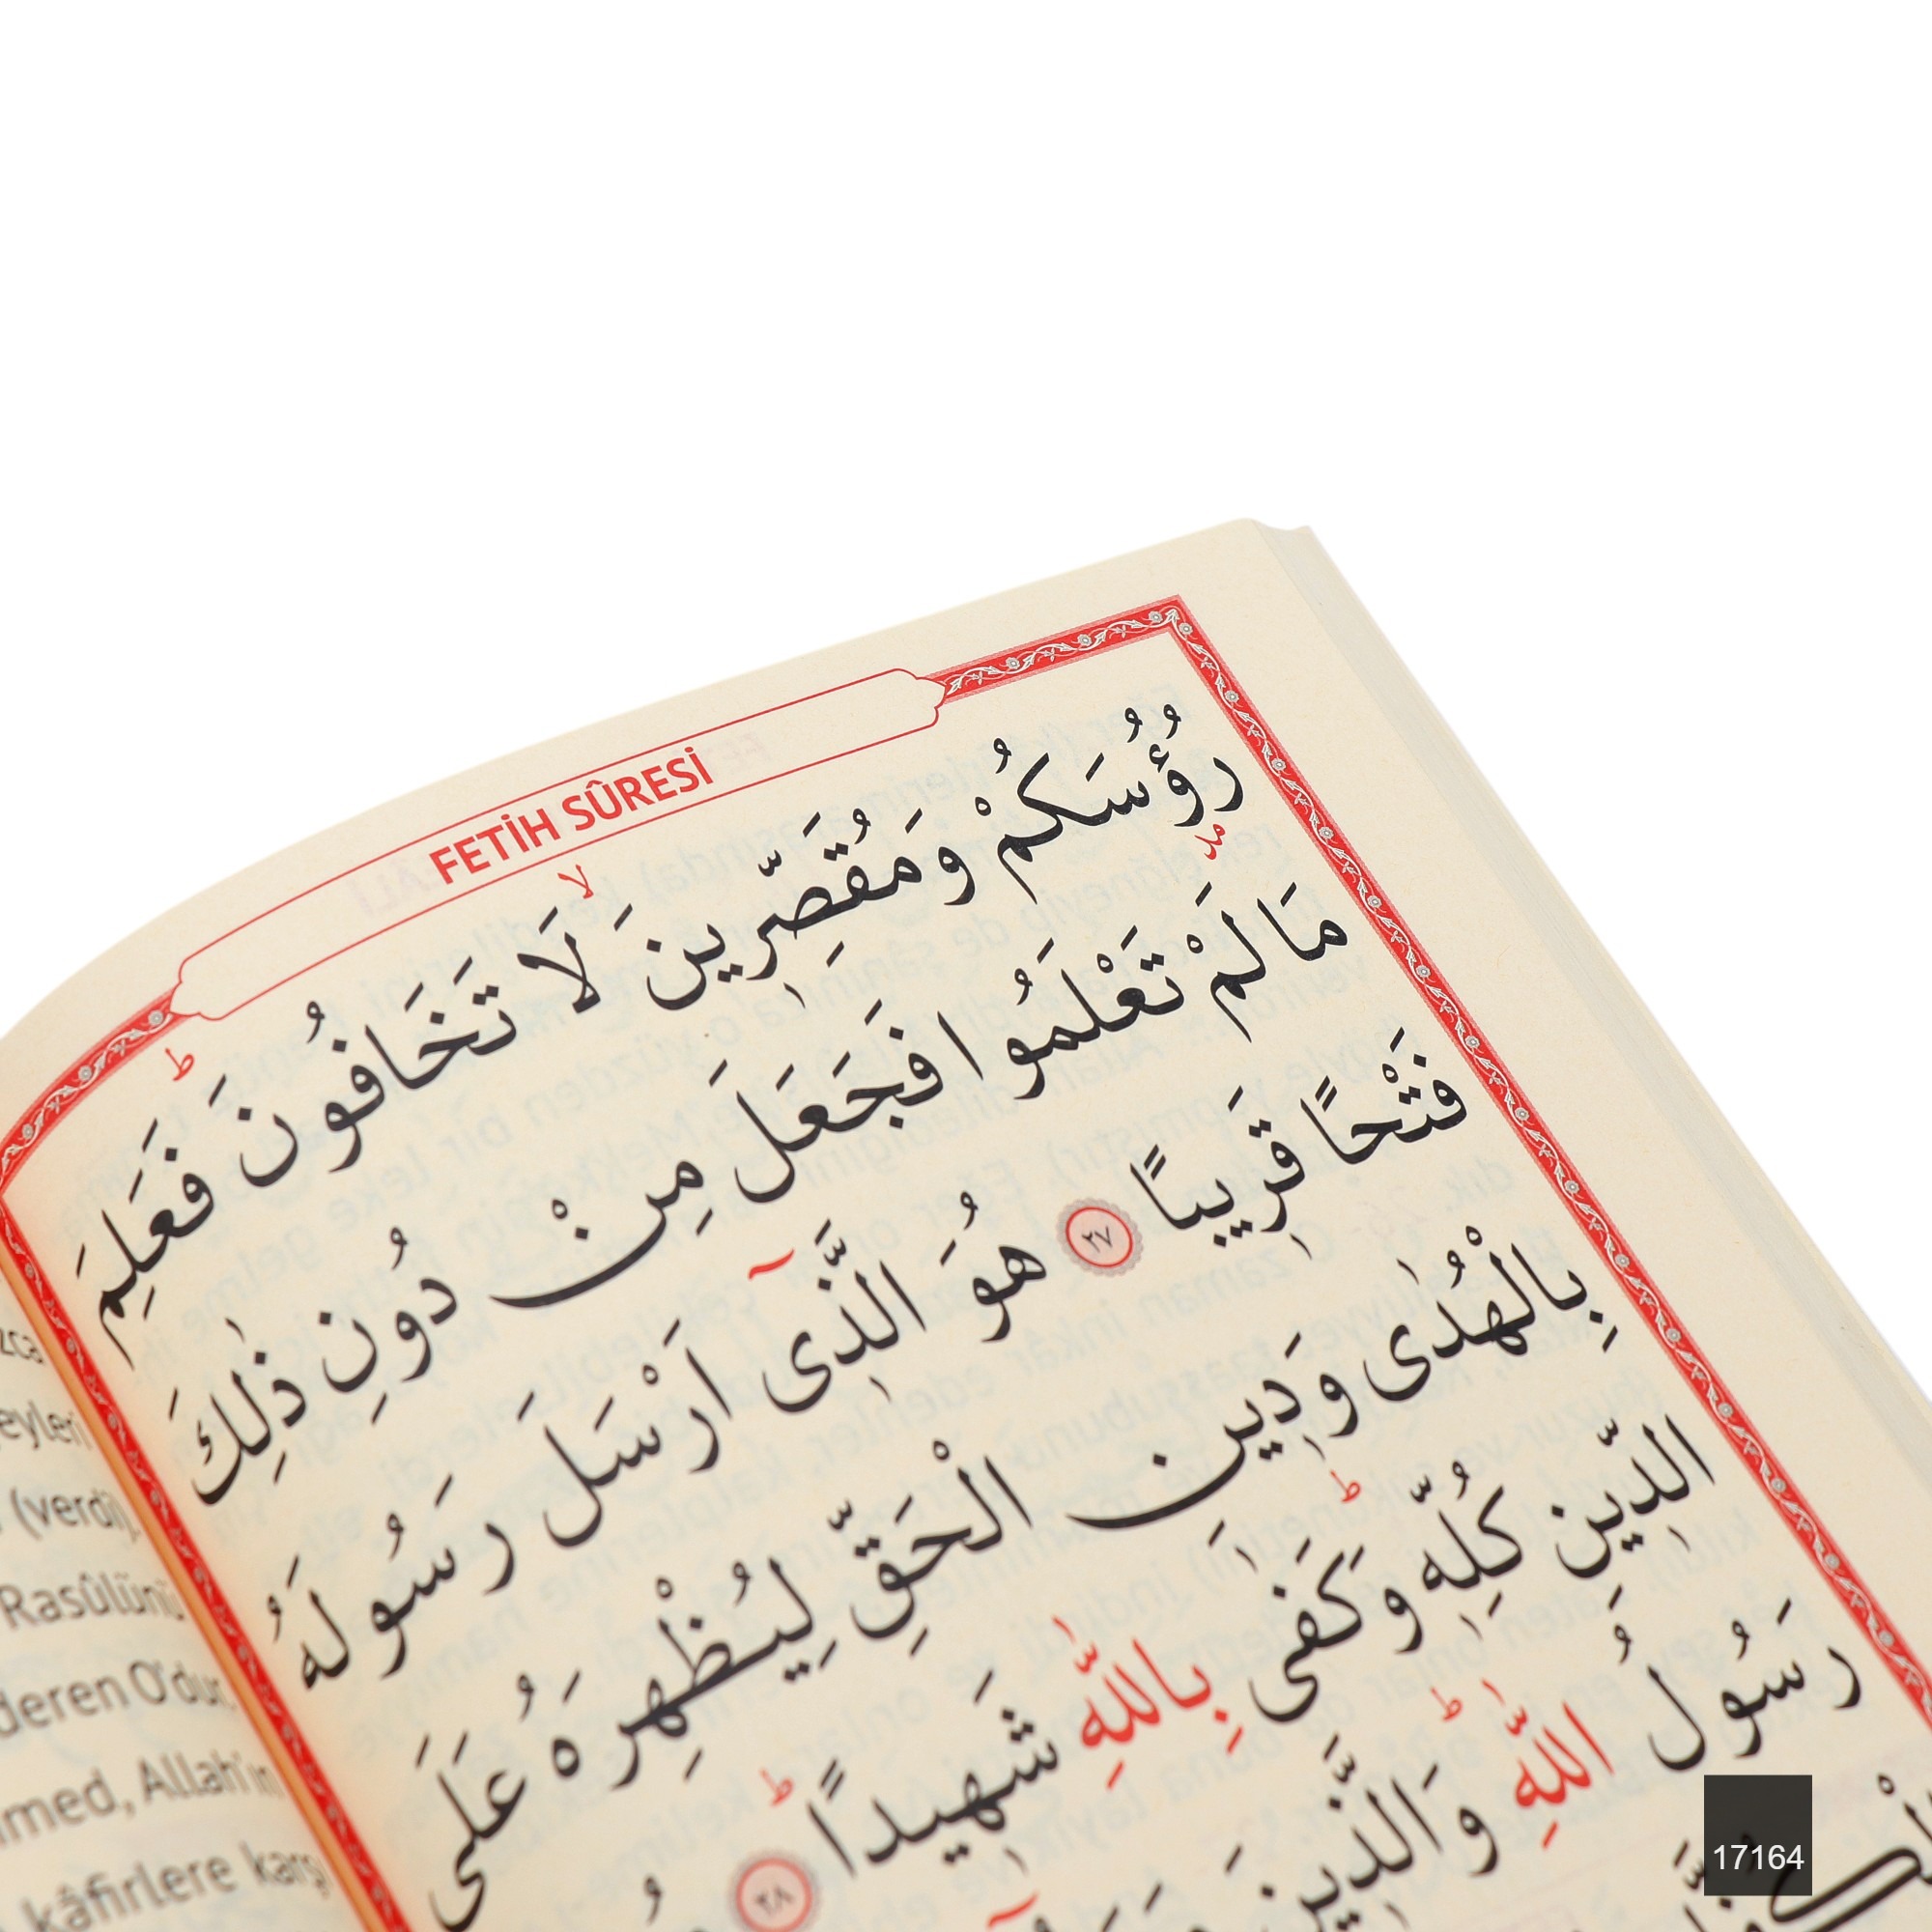 FETİH SÛRESİ
رُؤُسَكُمْ وَمُقَصِّرِينَ لَا تَخَافُونَ فَعَلِمَ
مَا لَمْ تَعْلَمُوا فَجَعَلَ مِنْ دُونِ ذٰلِكَ
فَتْحًا قَرِيبًا ٢٧ هُوَ الَّذِى اَرْسَلَ رَسُولَهُ
بِالْهُدٰى وَدِينِ الْحَقِّ لِيُظْهِرَهُ عَلَى
الدِّينِ كُلِّهِ وَكَفٰى بِاللّٰهِ شَهِيدًا ٢٨
رَسُولُ اللّٰهِ وَالَّذِينَ
eyleri
(verdi).
Rasûlünü
deren O'dur.
med, Allah'ın
kâfirlere karşı
17164